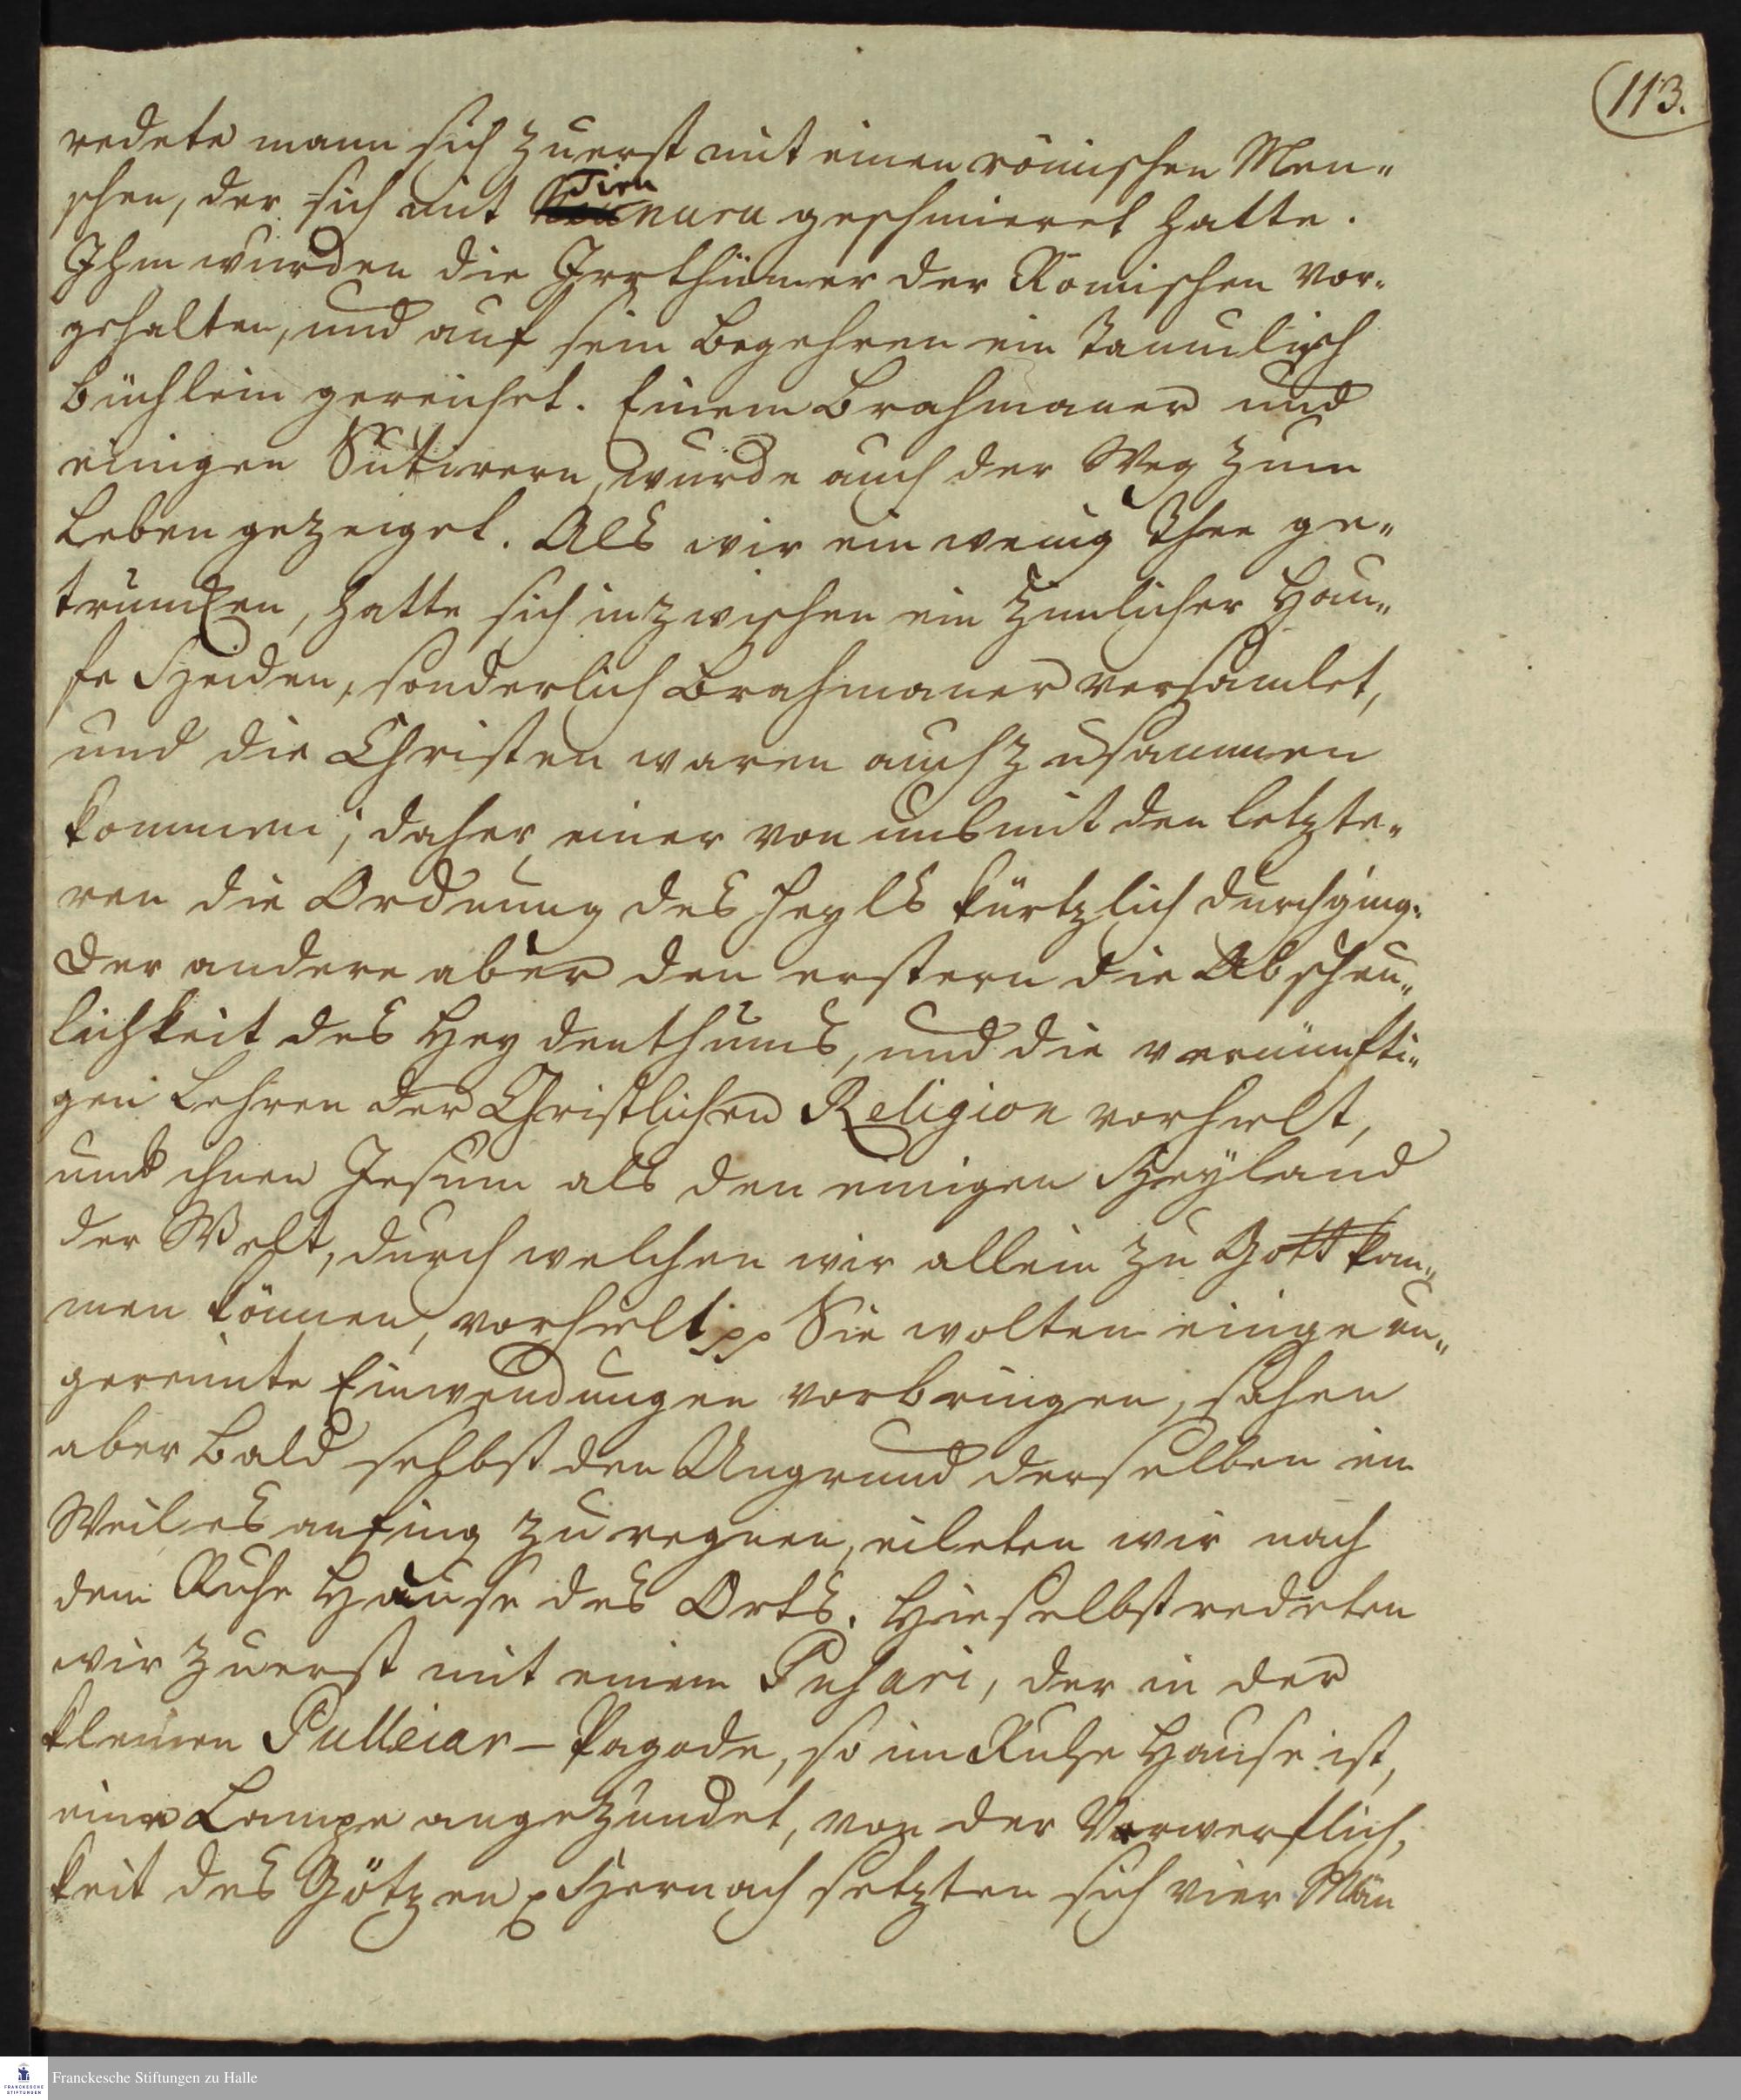 113.
redete mann sich zuerst mit einen römischen Men„
schen, der sich mit Tirunuru geschmieret hatte.
Ihm wurden die Irrthümer der Römischen vor„
gehalten, und auf sein Begehren ein Tamulisch
Büchlein gereichet. Einem Brahmaner und
einigen Sutirern, wurde auch der Weg zum
Leben gezeiget. Als wir ein wenig Thee ge„
truncken, hatte sich inzwischen ein zimlicher Hau„
fe Heiden, sonderlich Brahmaner versamlet,
und die Christen waren auch zusammen
kommen; daher einer von uns mit den letzte„
ren die Ordnung des Heyls kürtzlich durchging.
Der andere aber den erstern die Abscheu„
lichkeit des Heydenthums, und die vernünfti„
gen Lehren der Christlichen Religion vorhielt,
und ihnen Jesum als den einigen Heyland
der Welt, durch welchen wir allein zu Gott kom„
men können, vorhielt pp Sie wolten einige un„
gereimte Einwendungen vorbringen, sahen
aber bald selbst den Ungrund derselben ein
Weil es anfing zu regnen, eileten wir nach
dem Ruhe Hause des Orts. Hieselbst redeten
wir zuerst mit einem Puhari, der in der
kleinen Pulleiar-Pagode, so im Ruhe Hause ist,
eine Lampe angezündet, von der Verwerflich,
keit des Götzen p Hernach setzten sich vier Män
Franckesche Stiftungen zu Halle
FRANCKESCHE
STIFTUNGEN